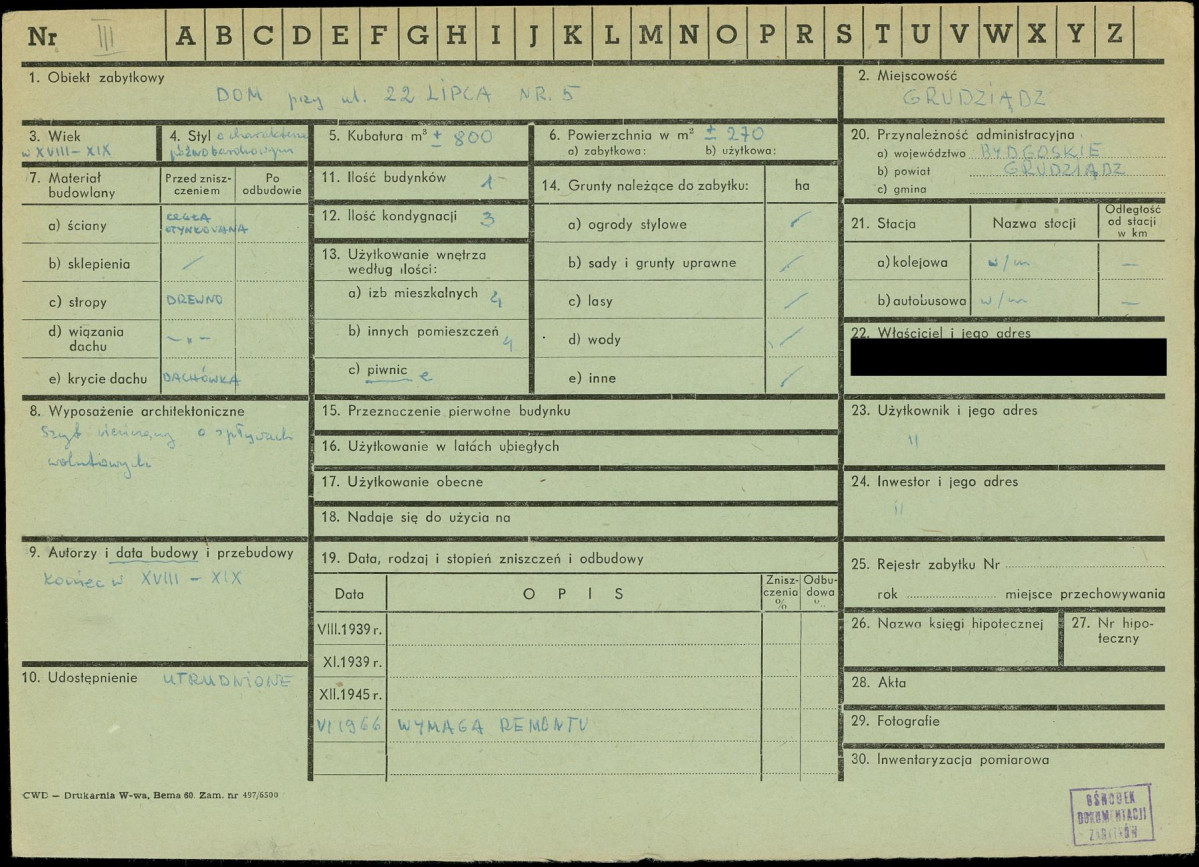 Nr III A B C D E F G H I J K L M N O P R S T U V W X Y Z
1. Obiekt zabytkowy
DOM przy ul. 22 LIPCA NR. 5
2. Miejscowość
GRUDZIĄDZ
3. Wiek
w XVIII – XIX
4. Styl o charakterze
późnobarokowym
5. Kubatura m³ ± 800
6. Powierzchnia w m² ± 270
a) zabytkowa: b) użytkowa:
7. Materiał budowlany
Przed zniszczeniem
Po odbudowie
a) ściany CEGŁA
OTYNKOWANA
b) sklepienia /
c) stropy DREWNO
d) wiązania dachu – „ –
e) krycie dachu DACHÓWKA
8. Wyposażenie architektoniczne
Szyt wieńczący o spływach
wolutowych
9. Autorzy i data budowy i przebudowy
koniec w XVIII – XIX
10. Udostępnienie UTRUDNIONE
11. Ilość budynków 1
12. Ilość kondygnacji 3
13. Użytkowanie wnętrza
według ilości:
a) izb mieszkalnych 4
b) innych pomieszczeń 4
c) piwnic
14. Grunty należące do zabytku: ha
a) ogrody stylowe /
b) sady i grunty uprawne /
c) lasy /
d) wody /
e) inne /
15. Przeznaczenie pierwotne budynku
16. Użytkowanie w latach ubiegłych
17. Użytkowanie obecne
18. Nadaje się do użycia na
19. Data, rodzaj i stopień zniszczeń i odbudowy
Data OPIS Zniszczenia % Odbudowa %
VIII.1939 r.
XI.1939 r.
XII.1945 r.
VI 1966 WYMAGA REMONTU
20. Przynależność administracyjna
a) województwo BYDGOSKIE
b) powiat GRUDZIĄDZ
c) gmina
21. Stacja Nazwa stacji Odległość od stacji w km
a) kolejowa w/m –
b) autobusowa w/m –
22. Właściciel i jego adres
23. Użytkownik i jego adres
"
24. Inwestor i jego adres
"
25. Rejestr zabytku Nr
rok miejsce przechowywania
26. Nazwa księgi hipotecznej
27. Nr hipoteczny
28. Akta
29. Fotografie
30. Inwentaryzacja pomiarowa
CWD — Drukarnia W-wa, Bema 60. Zam. nr 497/6500
OŚRODEK
DOKUMENTACJI
ZABYTKÓW